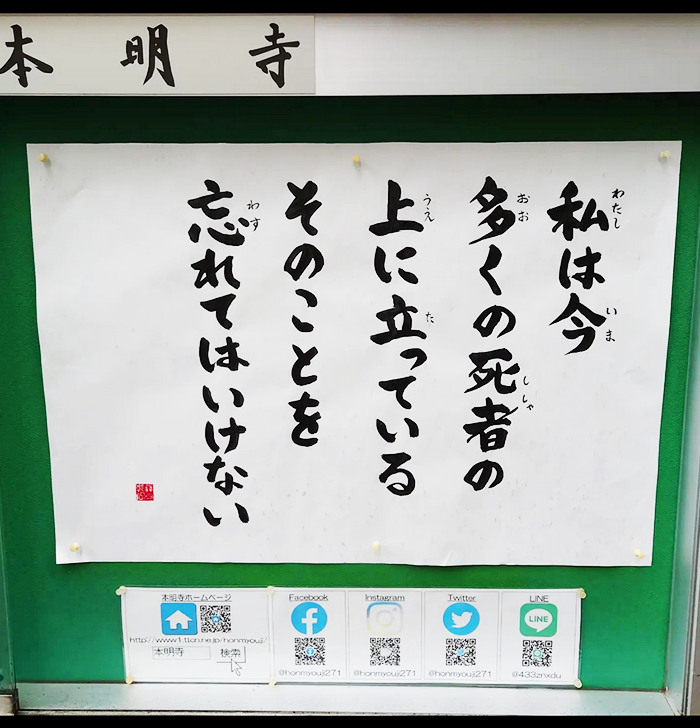 本明寺
私は今
わたし
いま
多くの死者の
おお
ししゃ
上に立っている
うえ
た
そのことを
忘れてはいけない
わす
本明寺ホームページ
http://www1.ttcn.ne.jp/honmyouji/
本明寺 検索
Facebook
@honmyouji271
Instagram
@honmyouji271
Twitter
@honmyouji271
LINE
LINE
@433znxdu